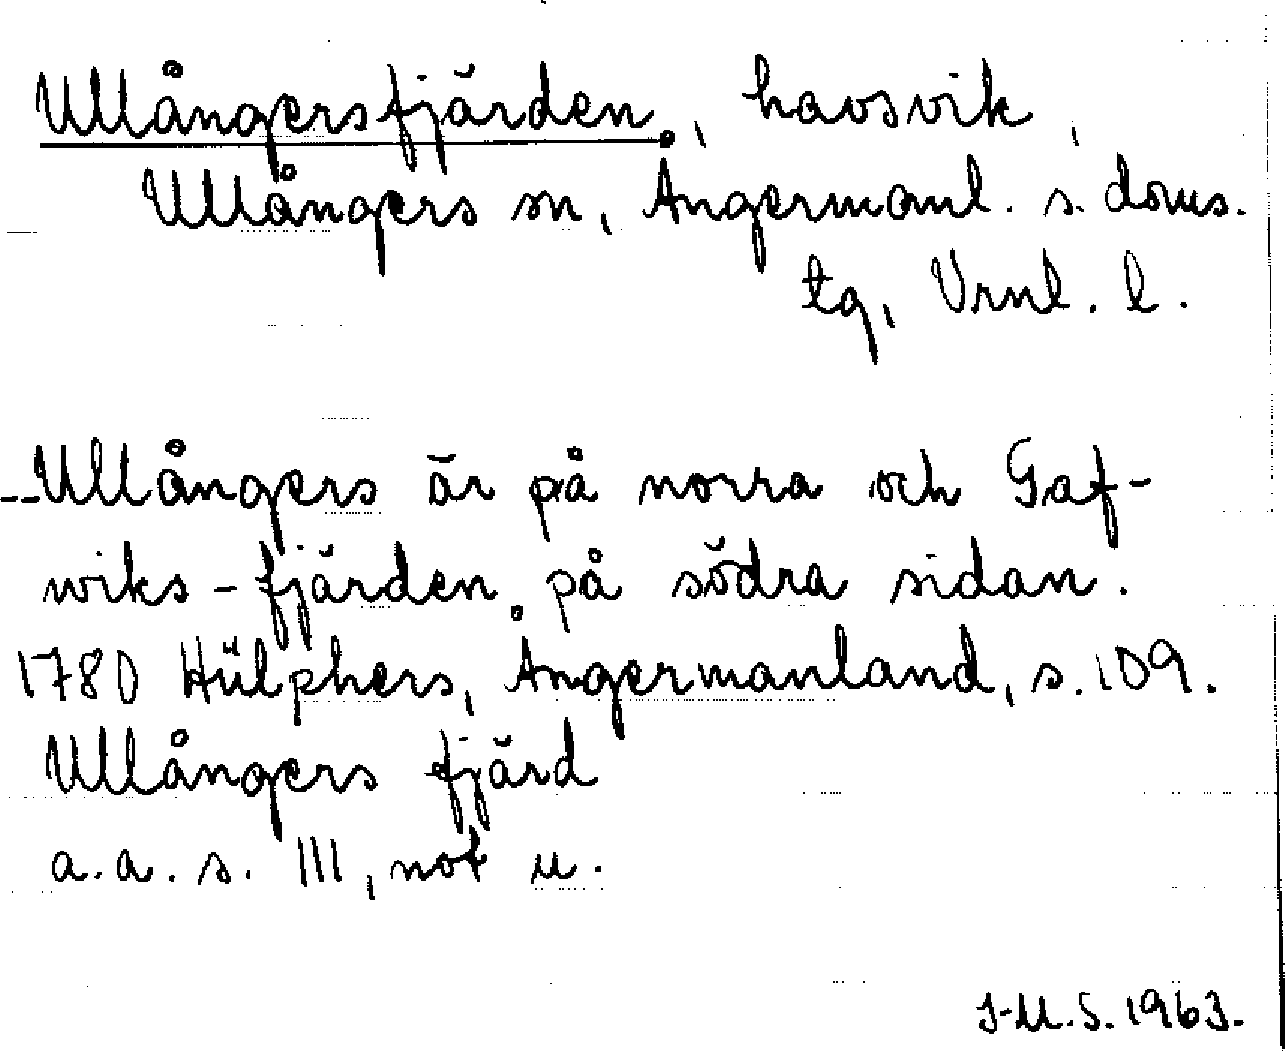 Ullångersfjärden, havsvik,
Ullångers sn, Ångermanl. s. doms.
tg, Vrnl. l.
--Ullångers är på norra och Gaf-
wiks-fjärden på södra sidan.
1780 Hülphers, Ångermanland, s. 109.
Ullångers fjärd
a.a. s. 111, not u.
J-M.S. 1963.